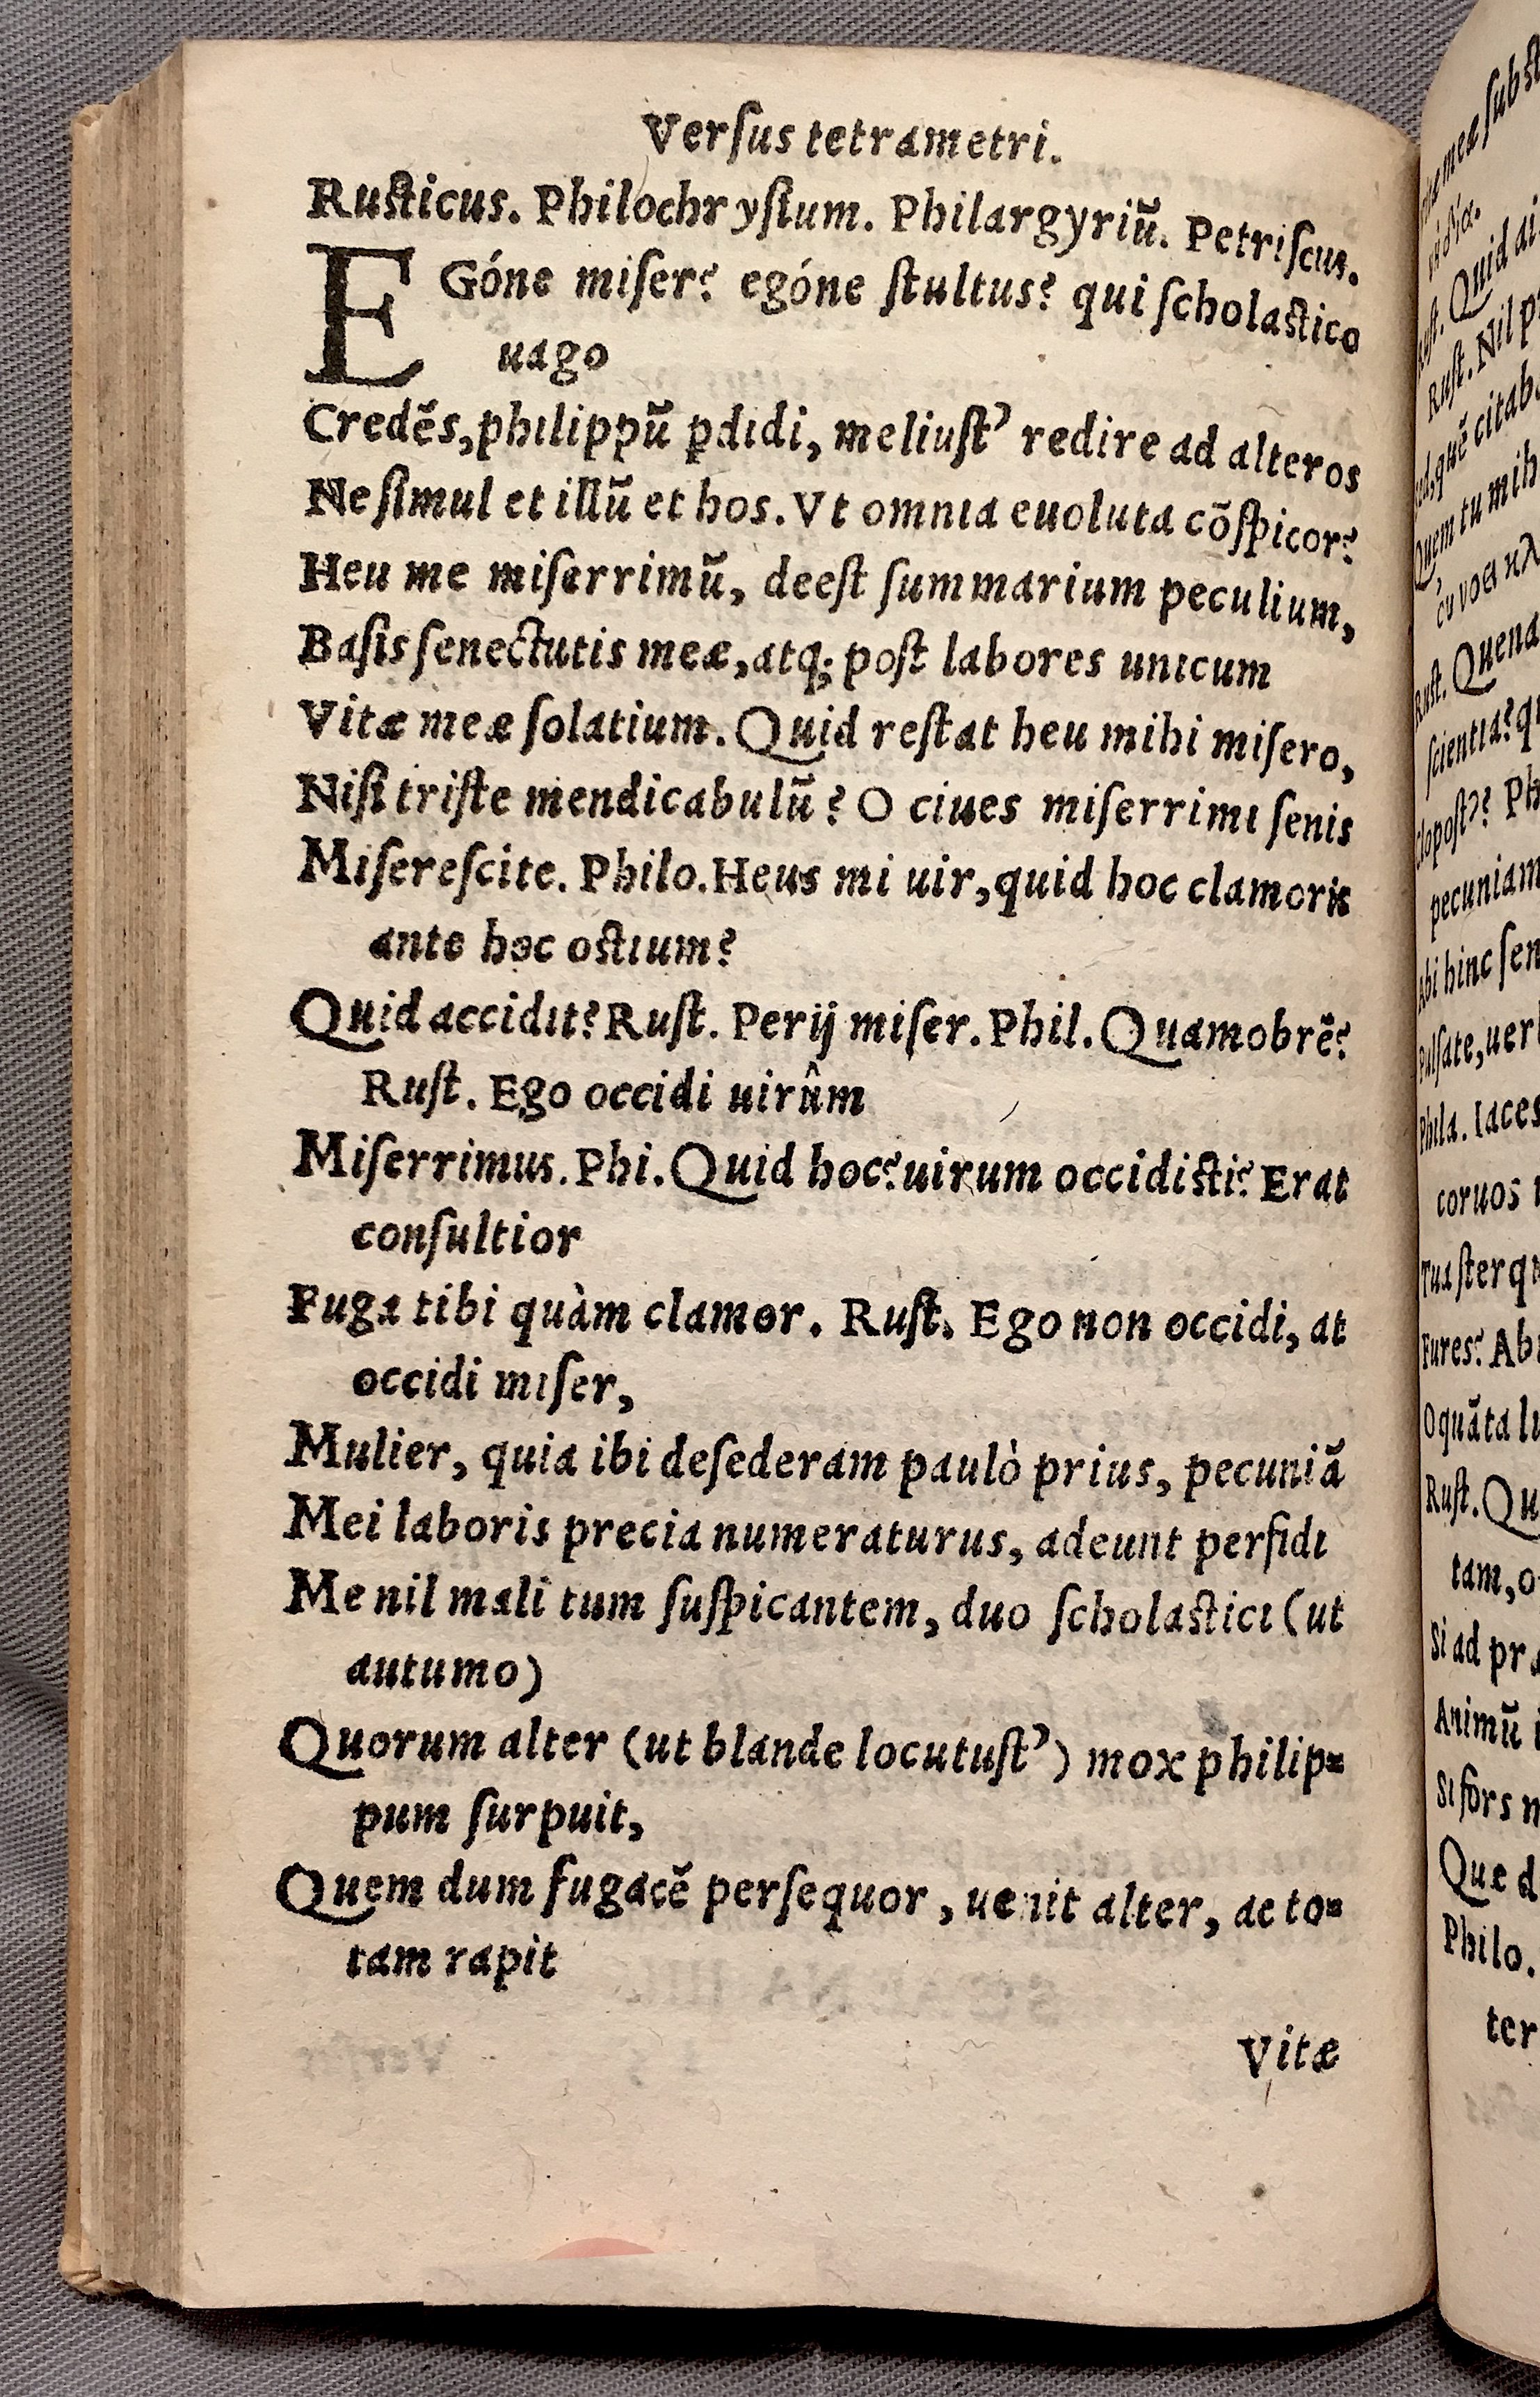 Verſus tetrametri.
Ruſticus. Philochryſium. Philargyriũ. Petriſcus.
EGóne miſer? egóne ſtultus? qui ſcholaſtico
uago
Credẽs, philippũ ꝑdidi, meliuſt’ redire ad alteros
Ne ſimul et illũ et hos. Vt omnia euoluta cõſpicor?
Heu me miſerrimũ, deeſt ſummarium peculium,
Baſis ſenectutis meæ, atq; poſt labores unicum
Vitæ meæ ſolatium. Quid reſtat heu mihi miſero,
Niſi triſte mendicabulũ? O ciues miſerrimi ſenis
Miſereſcite. Philo. Heus mi uir, quid hoc clamoris
ante hoc oſtium?
Quid accidit? Ruſt. Perij miſer. Phil. Quamobrẽ?
Ruſt. Ego occidi uirûm
Miſerrimus. Phi. Quid hoc? uirum occidiſti? Erat
conſultior
Fuga tibi quàm clamor. Ruſt. Ego non occidi, at
occidi miſer,
Mulier, quia ibi deſederam paulò prius, pecuniã
Mei laboris precia numeraturus, adeunt perfidi
Me nil mali tum ſuſpicantem, duo ſcholaſtici (ut
autumo)
Quorum alter (ut blande locutuſt’) mox philip⸗
pum ſurpuit,
Quem dum fugacẽ perſequor, uenit alter, ac to⸗
tam rapit
Vitæ
ſcientia? qu
pecuniam
Abi hinc ſen
Phila. Iaces
coruos
Fures? Ab
O quãta lu
Ruſt. Qu
tam, o
Si ad pr
Animũ i
Si fors n
Quæ d
Philo.
ter